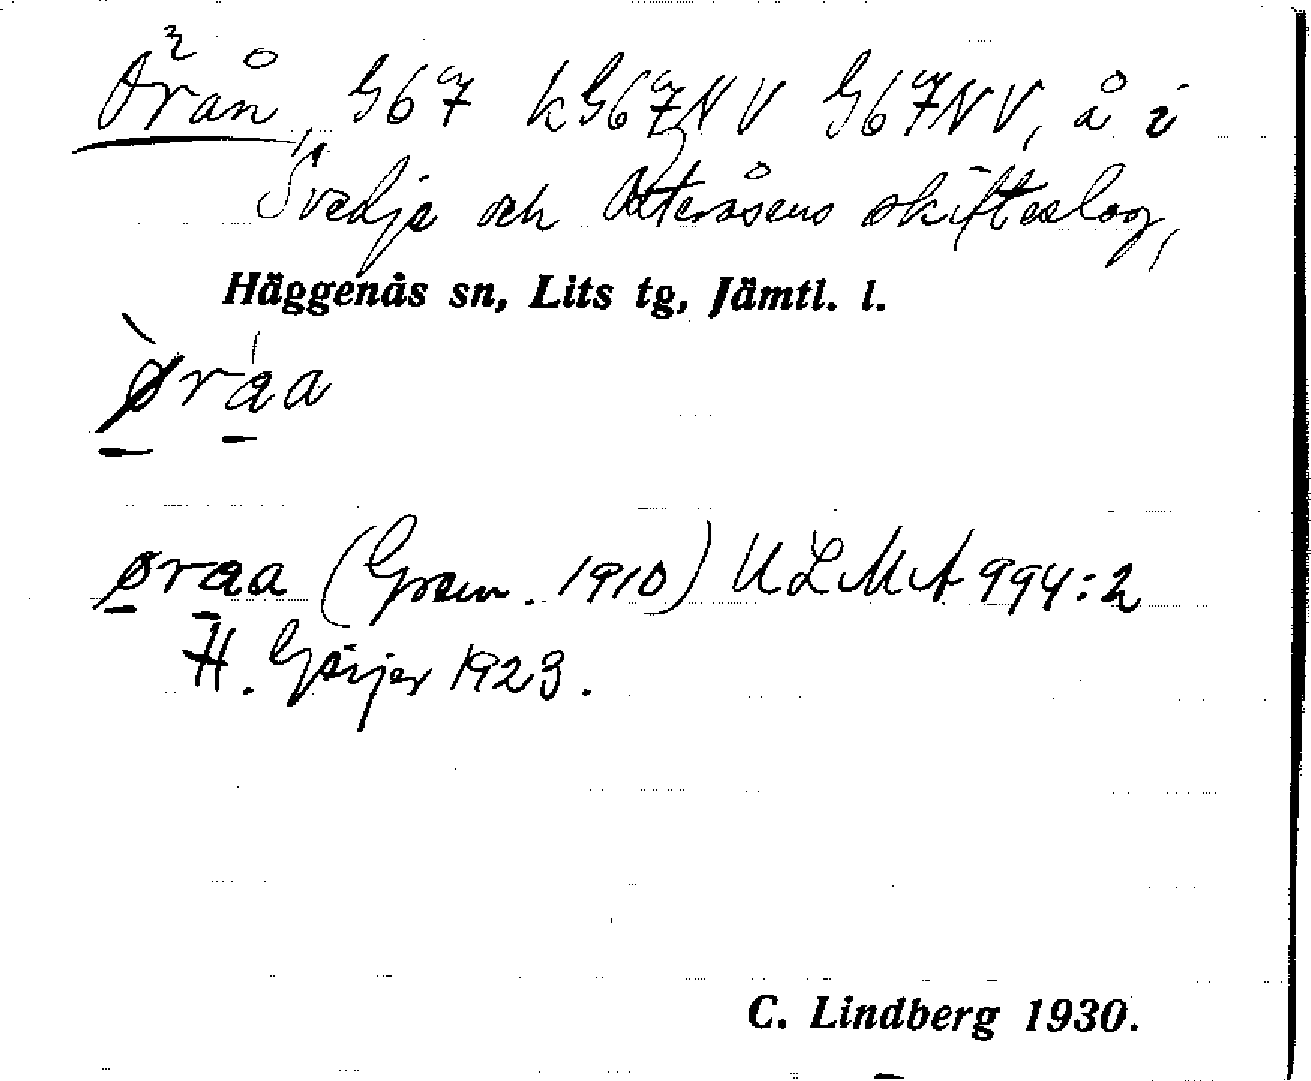 Örån, G67 kG67NV G67NV, å i
Svedje och Österåsens skifteslag,
Häggenås sn, Lits tg, Jämtl. l.
øràa
øraa (Gram. 1910) ULMA 994:2
H. Geijer 1923.
C. Lindberg 1930.